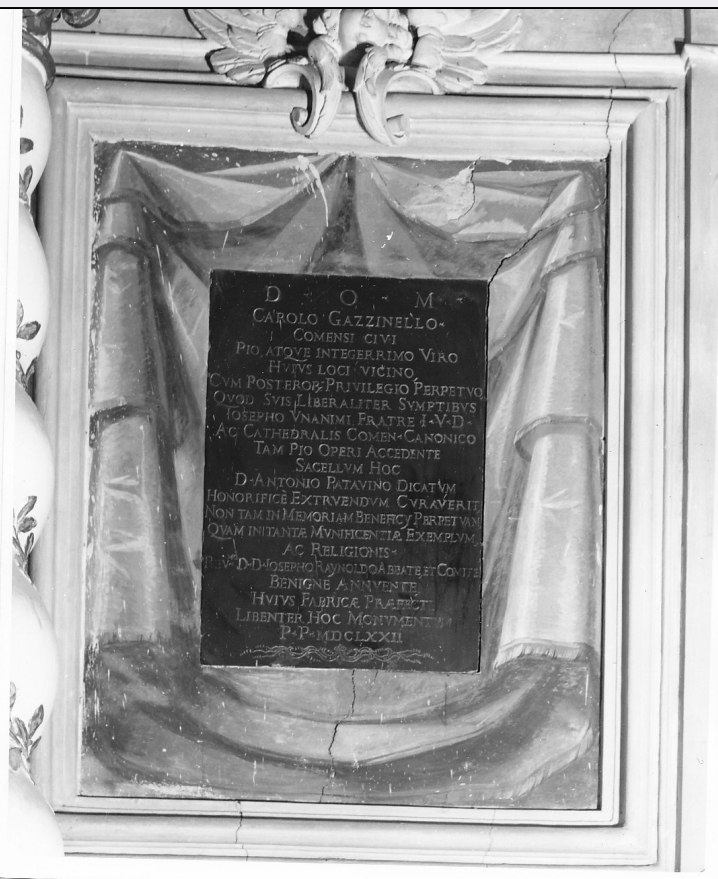 D · O · M ·
CAROLO GAZZINELLO·
COMENSI CIVI
PIO, ATQVE INTEGERRIMO VIRO
HVIVS LOCI VICINO,
CVM POSTEROR, PRIVILEGIO PERPETVO
QVOD SVIS LIBERALITER SVMPTIBVS
IOSEPHO VNANIMI FRATRE I·V·D·
AC CATHEDRALIS COMEN· CANONICO
TAM PIO OPERI ACCEDENTE
SACELLVM HOC
D·ANTONIO PATAVINO DICATVM
HONORIFICÈ EXTRVENDVM CVRAVERIT
NON TAM IN MEMORIAM BENEFICY PERPETVAM
QVAM INITANTÆ MVNIFICENTIÆ EXEMPLVM
AC RELIGIONIS·
D·D·IOSEPHO RAYNOLDO ABBATE, ET COMITE
BENIGNE ANNVENTE
HVIVS FABRICÆ PRÆFECTI
LIBENTER HOC
P·P·MDCLXXII